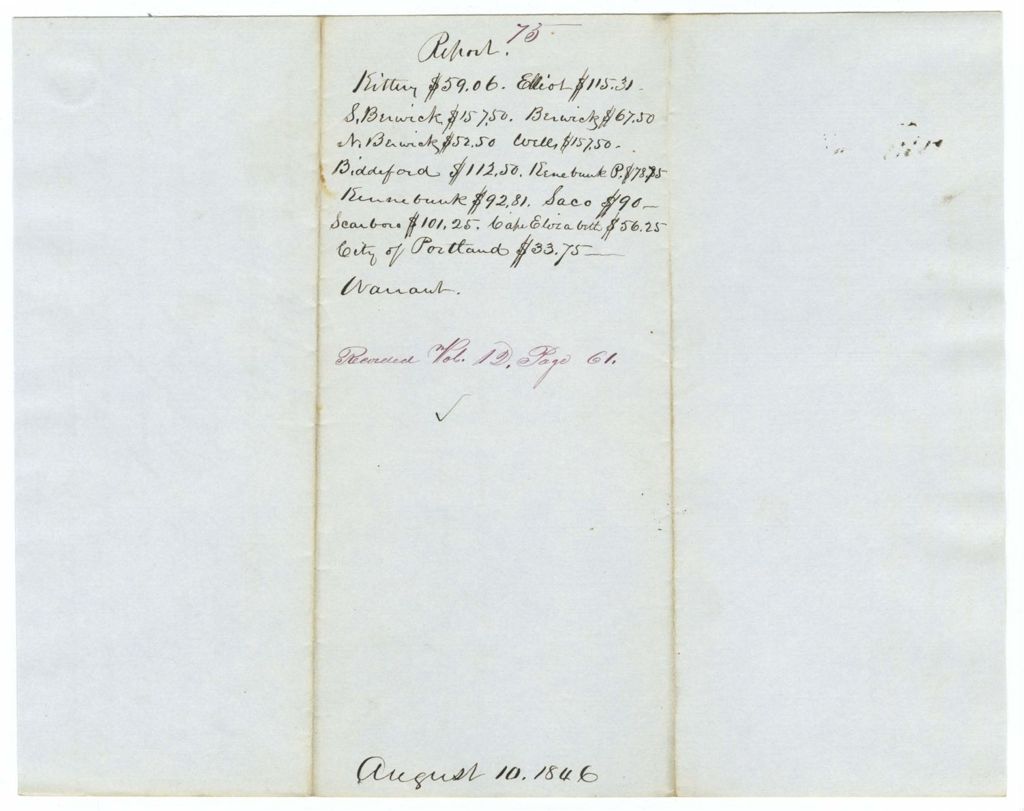 Report. 75
Kittery $59.06. Elliot $115.31.
S. Berwick, $157.50. Berwick, $67.50
N. Berwick, $52.50 Wells, $157.50.
Biddeford $112.50. Kenebunk P. $78.75
Kennebunk $92.81. Saco $90—
Scarboro $101.25. Cape Elizabeth $56.25
City of Portland $33.75—
Warrant.
Recorded Vol. 12, Page 61.
August 10. 1846